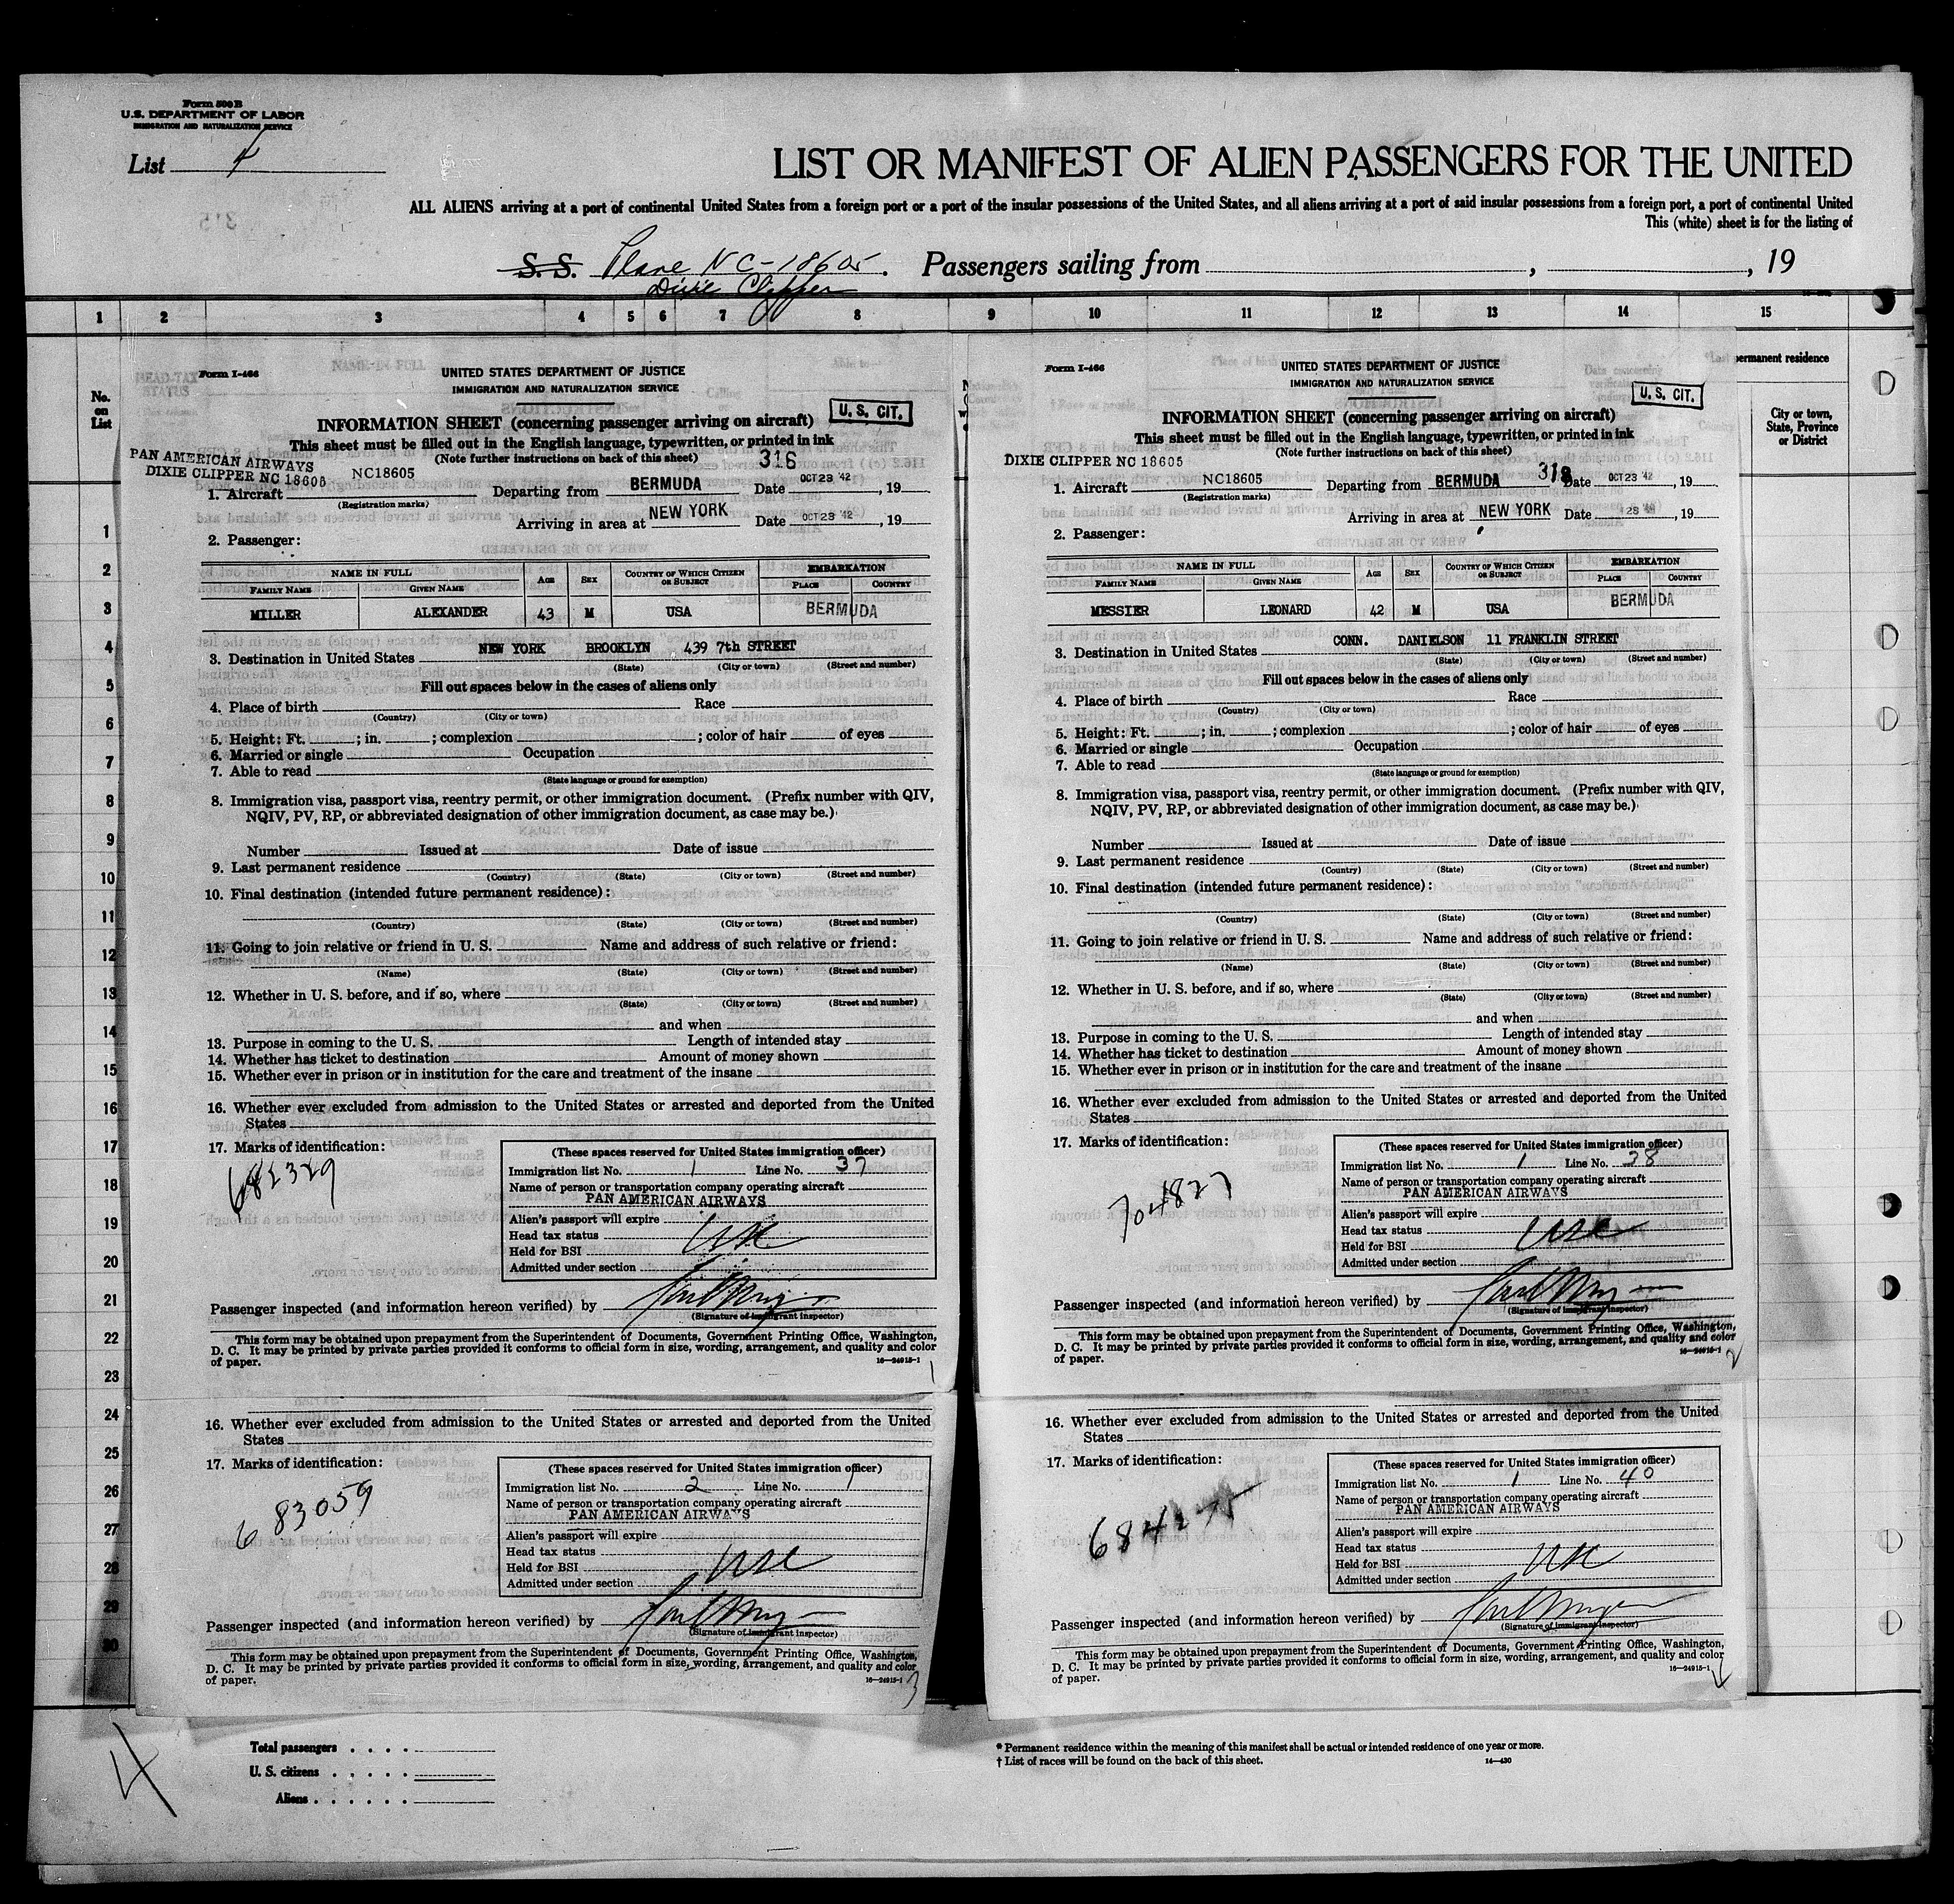 Form 500 B
U.S. DEPARTMENT OF LABOR
IMMIGRATION AND NATURALIZATION SERVICE
List 4
LIST OR MANIFEST OF ALIEN PASSENGERS FOR THE UNITED
ALL ALIENS arriving at a port of continental United States from a foreign port or a port of the insular possessions of the United States, and all aliens arriving at a port of said insular possessions from a foreign port, a port of continental United
This (white) sheet is for the listing of
S. S. Plane NC-18605. Passengers sailing from , , 19
Dixie Clipper
1 2 3 4 5 6 7 8 9 10 11 12 13 14 15
No.
on
List
1
2
3
4
5
6
7
8
9
10
11
12
13
14
15
16
17
18
19
20
21
22
23
24
25
26
27
28
29
30
HEAD-TAX
STATUS
NAME IN FULL
Form I-466
UNITED STATES DEPARTMENT OF JUSTICE
IMMIGRATION AND NATURALIZATION SERVICE
U. S. CIT.
INFORMATION SHEET (concerning passenger arriving on aircraft)
This sheet must be filled out in the English language, typewritten, or printed in ink
(Note further instructions on back of this sheet) 316
PAN AMERICAN AIRWAYS
DIXIE CLIPPER NC 18605
1. Aircraft NC18605 Departing from BERMUDA Date OCT 23 '42, 19
(Registration marks)
Arriving in area at NEW YORK Date OCT 23 '42, 19
2. Passenger:
NAME IN FULL AGE SEX COUNTRY OF WHICH CITIZEN OR SUBJECT EMBARKATION
FAMILY NAME GIVEN NAME PLACE COUNTRY
MILLER ALEXANDER 43 M USA BERMUDA
NEW YORK BROOKLYN 439 7th STREET
3. Destination in United States
(State) (City or town) (Street and number)
Fill out spaces below in the cases of aliens only
4. Place of birth Race
(Country) (City or town)
5. Height: Ft. ; in. ; complexion ; color of hair of eyes
6. Married or single Occupation
7. Able to read
(State language or ground for exemption)
8. Immigration visa, passport visa, reentry permit, or other immigration document. (Prefix number with QIV,
NQIV, PV, RP, or abbreviated designation of other immigration document, as case may be.)
Number Issued at Date of issue
9. Last permanent residence
(Country) (State) (City or town) (Street and number)
10. Final destination (intended future permanent residence):
(Country) (State) (City or town) (Street and number)
11. Going to join relative or friend in U. S. Name and address of such relative or friend:
(Name) (State) (City or town) (Street and number)
12. Whether in U. S. before, and if so, where
(State) (City or town) (Street and number)
and when
13. Purpose in coming to the U. S. Length of intended stay
14. Whether has ticket to destination Amount of money shown
15. Whether ever in prison or in institution for the care and treatment of the insane
16. Whether ever excluded from admission to the United States or arrested and deported from the United
States
17. Marks of identification:
682329
(These spaces reserved for United States immigration officer)
Immigration list No. 1 Line No. 37
Name of person or transportation company operating aircraft
PAN AMERICAN AIRWAYS
Alien's passport will expire
Head tax status
Held for BSI
Admitted under section
USC
Passenger inspected (and information hereon verified) by
(Signature of immigrant inspector)
This form may be obtained upon prepayment from the Superintendent of Documents, Government Printing Office, Washington,
D. C. It may be printed by private parties provided it conforms to official form in size, wording, arrangement, and quality and color
of paper. 16—24915-1
1
16. Whether ever excluded from admission to the United States or arrested and deported from the United
States
17. Marks of identification:
683059
(These spaces reserved for United States immigration officer)
Immigration list No. 2 Line No. 1
Name of person or transportation company operating aircraft
PAN AMERICAN AIRWAYS
Alien's passport will expire
Head tax status
Held for BSI
Admitted under section
USC
Passenger inspected (and information hereon verified) by
(Signature of immigrant inspector)
This form may be obtained upon prepayment from the Superintendent of Documents, Government Printing Office, Washington,
D. C. It may be printed by private parties provided it conforms to official form in size, wording, arrangement, and quality and color
of paper. 16—24915-1
3
Form I-466
UNITED STATES DEPARTMENT OF JUSTICE
IMMIGRATION AND NATURALIZATION SERVICE
U. S. CIT.
INFORMATION SHEET (concerning passenger arriving on aircraft)
This sheet must be filled out in the English language, typewritten, or printed in ink
(Note further instructions on back of this sheet)
DIXIE CLIPPER NC 18605
318
1. Aircraft NC18605 Departing from BERMUDA Date OCT 23 '42, 19
(Registration marks)
Arriving in area at NEW YORK Date , 19
2. Passenger:
NAME IN FULL AGE SEX COUNTRY OF WHICH CITIZEN OR SUBJECT EMBARKATION
FAMILY NAME GIVEN NAME PLACE COUNTRY
MESSIER LEONARD 42 M USA BERMUDA
CONN. DANIELSON 11 FRANKLIN STREET
3. Destination in United States
(State) (City or town) (Street and number)
Fill out spaces below in the cases of aliens only
4. Place of birth Race
(Country) (City or town)
5. Height: Ft. ; in. ; complexion ; color of hair of eyes
6. Married or single Occupation
7. Able to read
(State language or ground for exemption)
8. Immigration visa, passport visa, reentry permit, or other immigration document. (Prefix number with QIV,
NQIV, PV, RP, or abbreviated designation of other immigration document, as case may be.)
Number Issued at Date of issue
9. Last permanent residence
(Country) (State) (City or town) (Street and number)
10. Final destination (intended future permanent residence):
(Country) (State) (City or town) (Street and number)
11. Going to join relative or friend in U. S. Name and address of such relative or friend:
(Name) (State) (City or town) (Street and number)
12. Whether in U. S. before, and if so, where
(State) (City or town) (Street and number)
and when
13. Purpose in coming to the U. S. Length of intended stay
14. Whether has ticket to destination Amount of money shown
15. Whether ever in prison or in institution for the care and treatment of the insane
16. Whether ever excluded from admission to the United States or arrested and deported from the United
States
17. Marks of identification:
704827
(These spaces reserved for United States immigration officer)
Immigration list No. 1 Line No. 38
Name of person or transportation company operating aircraft
PAN AMERICAN AIRWAYS
Alien's passport will expire
Head tax status
Held for BSI
Admitted under section
USC
Passenger inspected (and information hereon verified) by
(Signature of immigrant inspector)
This form may be obtained upon prepayment from the Superintendent of Documents, Government Printing Office, Washington,
D. C. It may be printed by private parties provided it conforms to official form in size, wording, arrangement, and quality and color
of paper. 16—24915-1
2
16. Whether ever excluded from admission to the United States or arrested and deported from the United
States
17. Marks of identification:
(These spaces reserved for United States immigration officer)
Immigration list No. 1 Line No. 40
Name of person or transportation company operating aircraft
PAN AMERICAN AIRWAYS
Alien's passport will expire
Head tax status
Held for BSI
Admitted under section
USC
Passenger inspected (and information hereon verified) by
(Signature of immigrant inspector)
This form may be obtained upon prepayment from the Superintendent of Documents, Government Printing Office, Washington,
D. C. It may be printed by private parties provided it conforms to official form in size, wording, arrangement, and quality and color
of paper. 16—24915-1
permanent residence
City or town,
State, Province
or District
4
Total passengers . . . .
U. S. citizens . . . . .
Aliens . . . . . .
* Permanent residence within the meaning of this manifest shall be actual or intended residence of one year or more.
† List of races will be found on the back of this sheet. 14—430